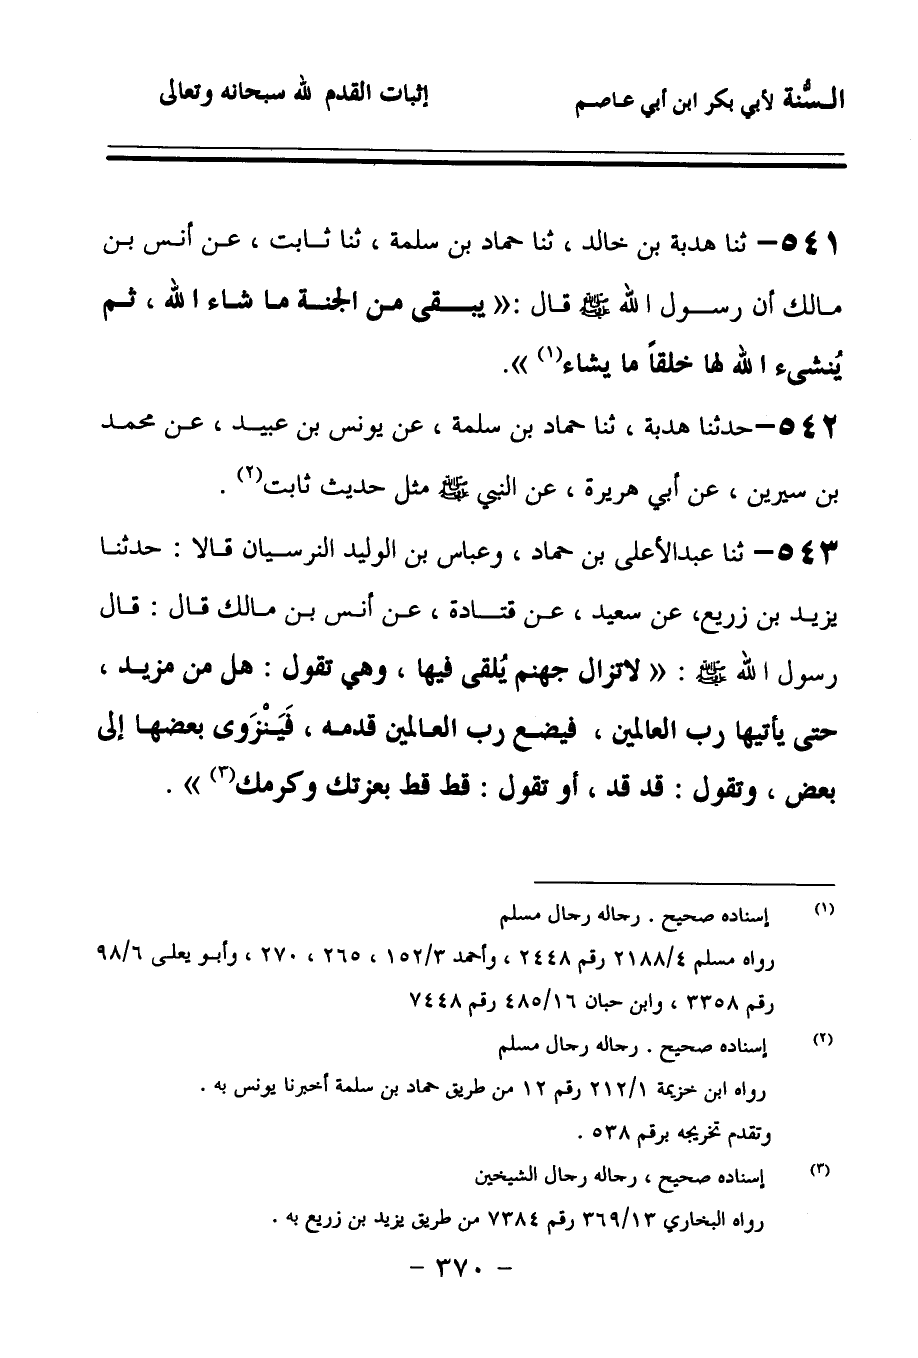 السُّنة لأبي بكر ابن أبي عاصم إثبات القدم لله سبحانه وتعالى
٥٤١- ثنا هدبة بن خالد ، ثنا حماد بن سلمة ، ثنا ثابت ، عن أنس بن
مالك أن رسول الله ﷺ قال :« يبقى من الجنة ما شاء الله ، ثم
يُنشىء الله لها خلقاً ما يشاء(١) ».
٥٤٢-حدثنا هدبة ، ثنا حماد بن سلمة ، عن يونس بن عبيد ، عن محمد
بن سيرين ، عن أبي هريرة ، عن النبي ﷺ مثل حديث ثابت(٢) .
٥٤٣- ثنا عبدالأعلى بن حماد ، وعباس بن الوليد النرسيان قالا : حدثنا
يزيد بن زريع، عن سعيد ، عن قتادة ، عن أنس بن مالك قال : قال
رسول الله ﷺ : « لاتزال جهنم يُلقى فيها ، وهي تقول : هل من مزيد ،
حتى يأتيها رب العالمين ، فيضع رب العالمين قدمه ، فَيَنْزَوى بعضها إلى
بعض ، وتقول : قد قد ، أو تقول : قط قط بعزتك وكرمك(٣) » .
(١) إسناده صحيح . رجاله رجال مسلم
رواه مسلم ٢١٨٨/٤ رقم ٢٤٤٨ ، وأحمد ١٥٢/٣ ، ٢٦٥ ، ٢٧٠ ، وأبو يعلى ٩٨/٦
رقم ٣٣٥٨ ، وابن حبان ٤٨٥/١٦ رقم ٧٤٤٨
(٢) إسناده صحيح . رجاله رجال مسلم
رواه ابن خزيمة ٢١٢/١ رقم ١٢ من طريق حماد بن سلمة أخبرنا يونس به .
وتقدم تخريجه برقم ٥٣٨ .
(٣) إسناده صحيح ، رجاله رجال الشيخين
رواه البخاري ٣٦٩/١٣ رقم ٧٣٨٤ من طريق يزيد بن زريع به .
- ٣٧٠ -